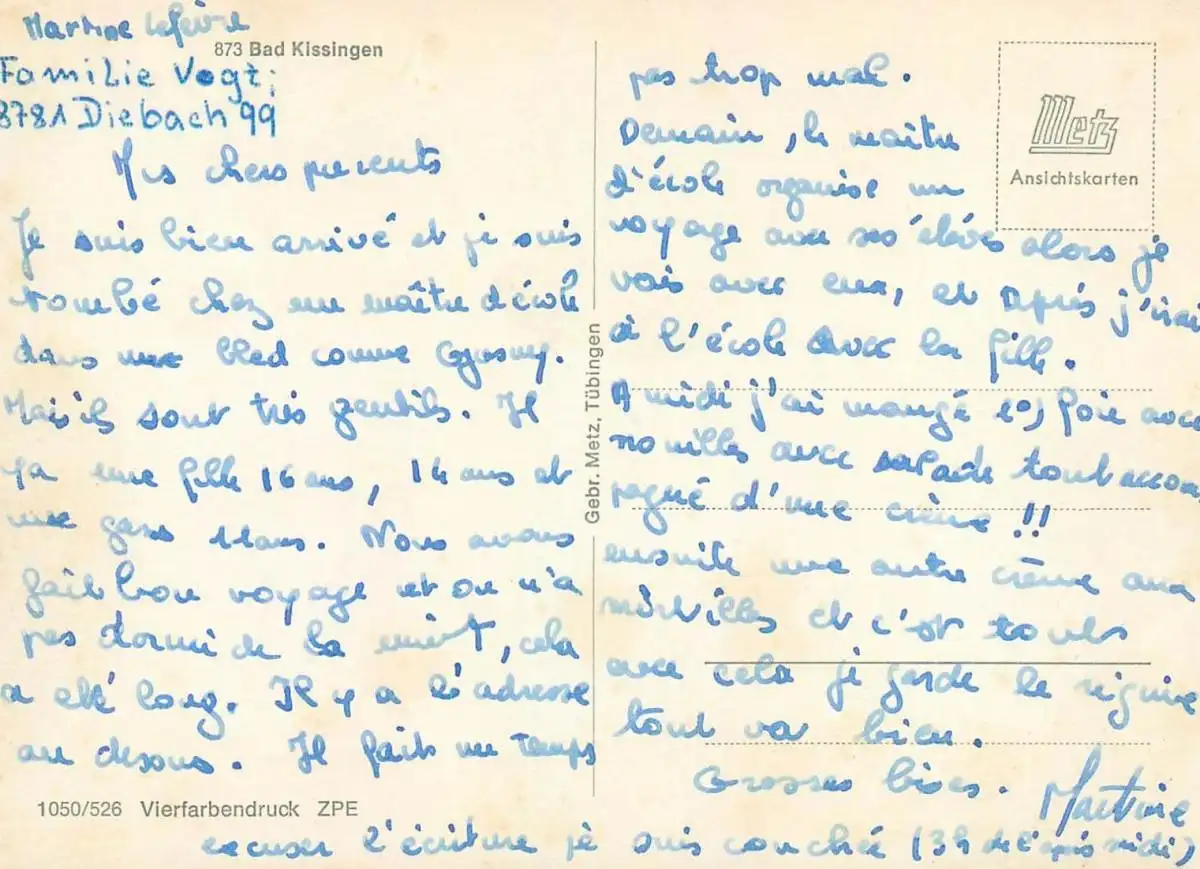 Martine Lefèvre
873 Bad Kissingen
Familie Vogt;
8781 Diebach 99
Mes chers parents
Je suis bien arrivé et je suis
tombé chez un maître d'école
dans un bled comme
Mais ils sont très gentils. Il
ya une fille 16 ans, 14 ans et
une gars 11ans. Nous avons
fait bon voyage et on n'a
pas dormi de la nuit, cela
a été long. Il y a l'adresse
au dessous. Il fait un temps
1050/526 Vierfarbendruck ZPE
Gebr. Metz, Tübingen
Metz
Ansichtskarten
pas trop mal.
Demain, le maître
d'école organise un
voyage avec ses élèves alors je
vais avec eux, et Après j'irai
à l'école avec la fille.
A midi j'ai mangé 1°) foie avec
nouilles avec salade tout accom
pagné d'une crème !!
ensuite une autre crème aux
mirtilles et c'est tout
avec cela je garde le régime
tout va bien.
Grosses bises. Martine
excuser l'écriture je suis couchée (3h de l'après midi)